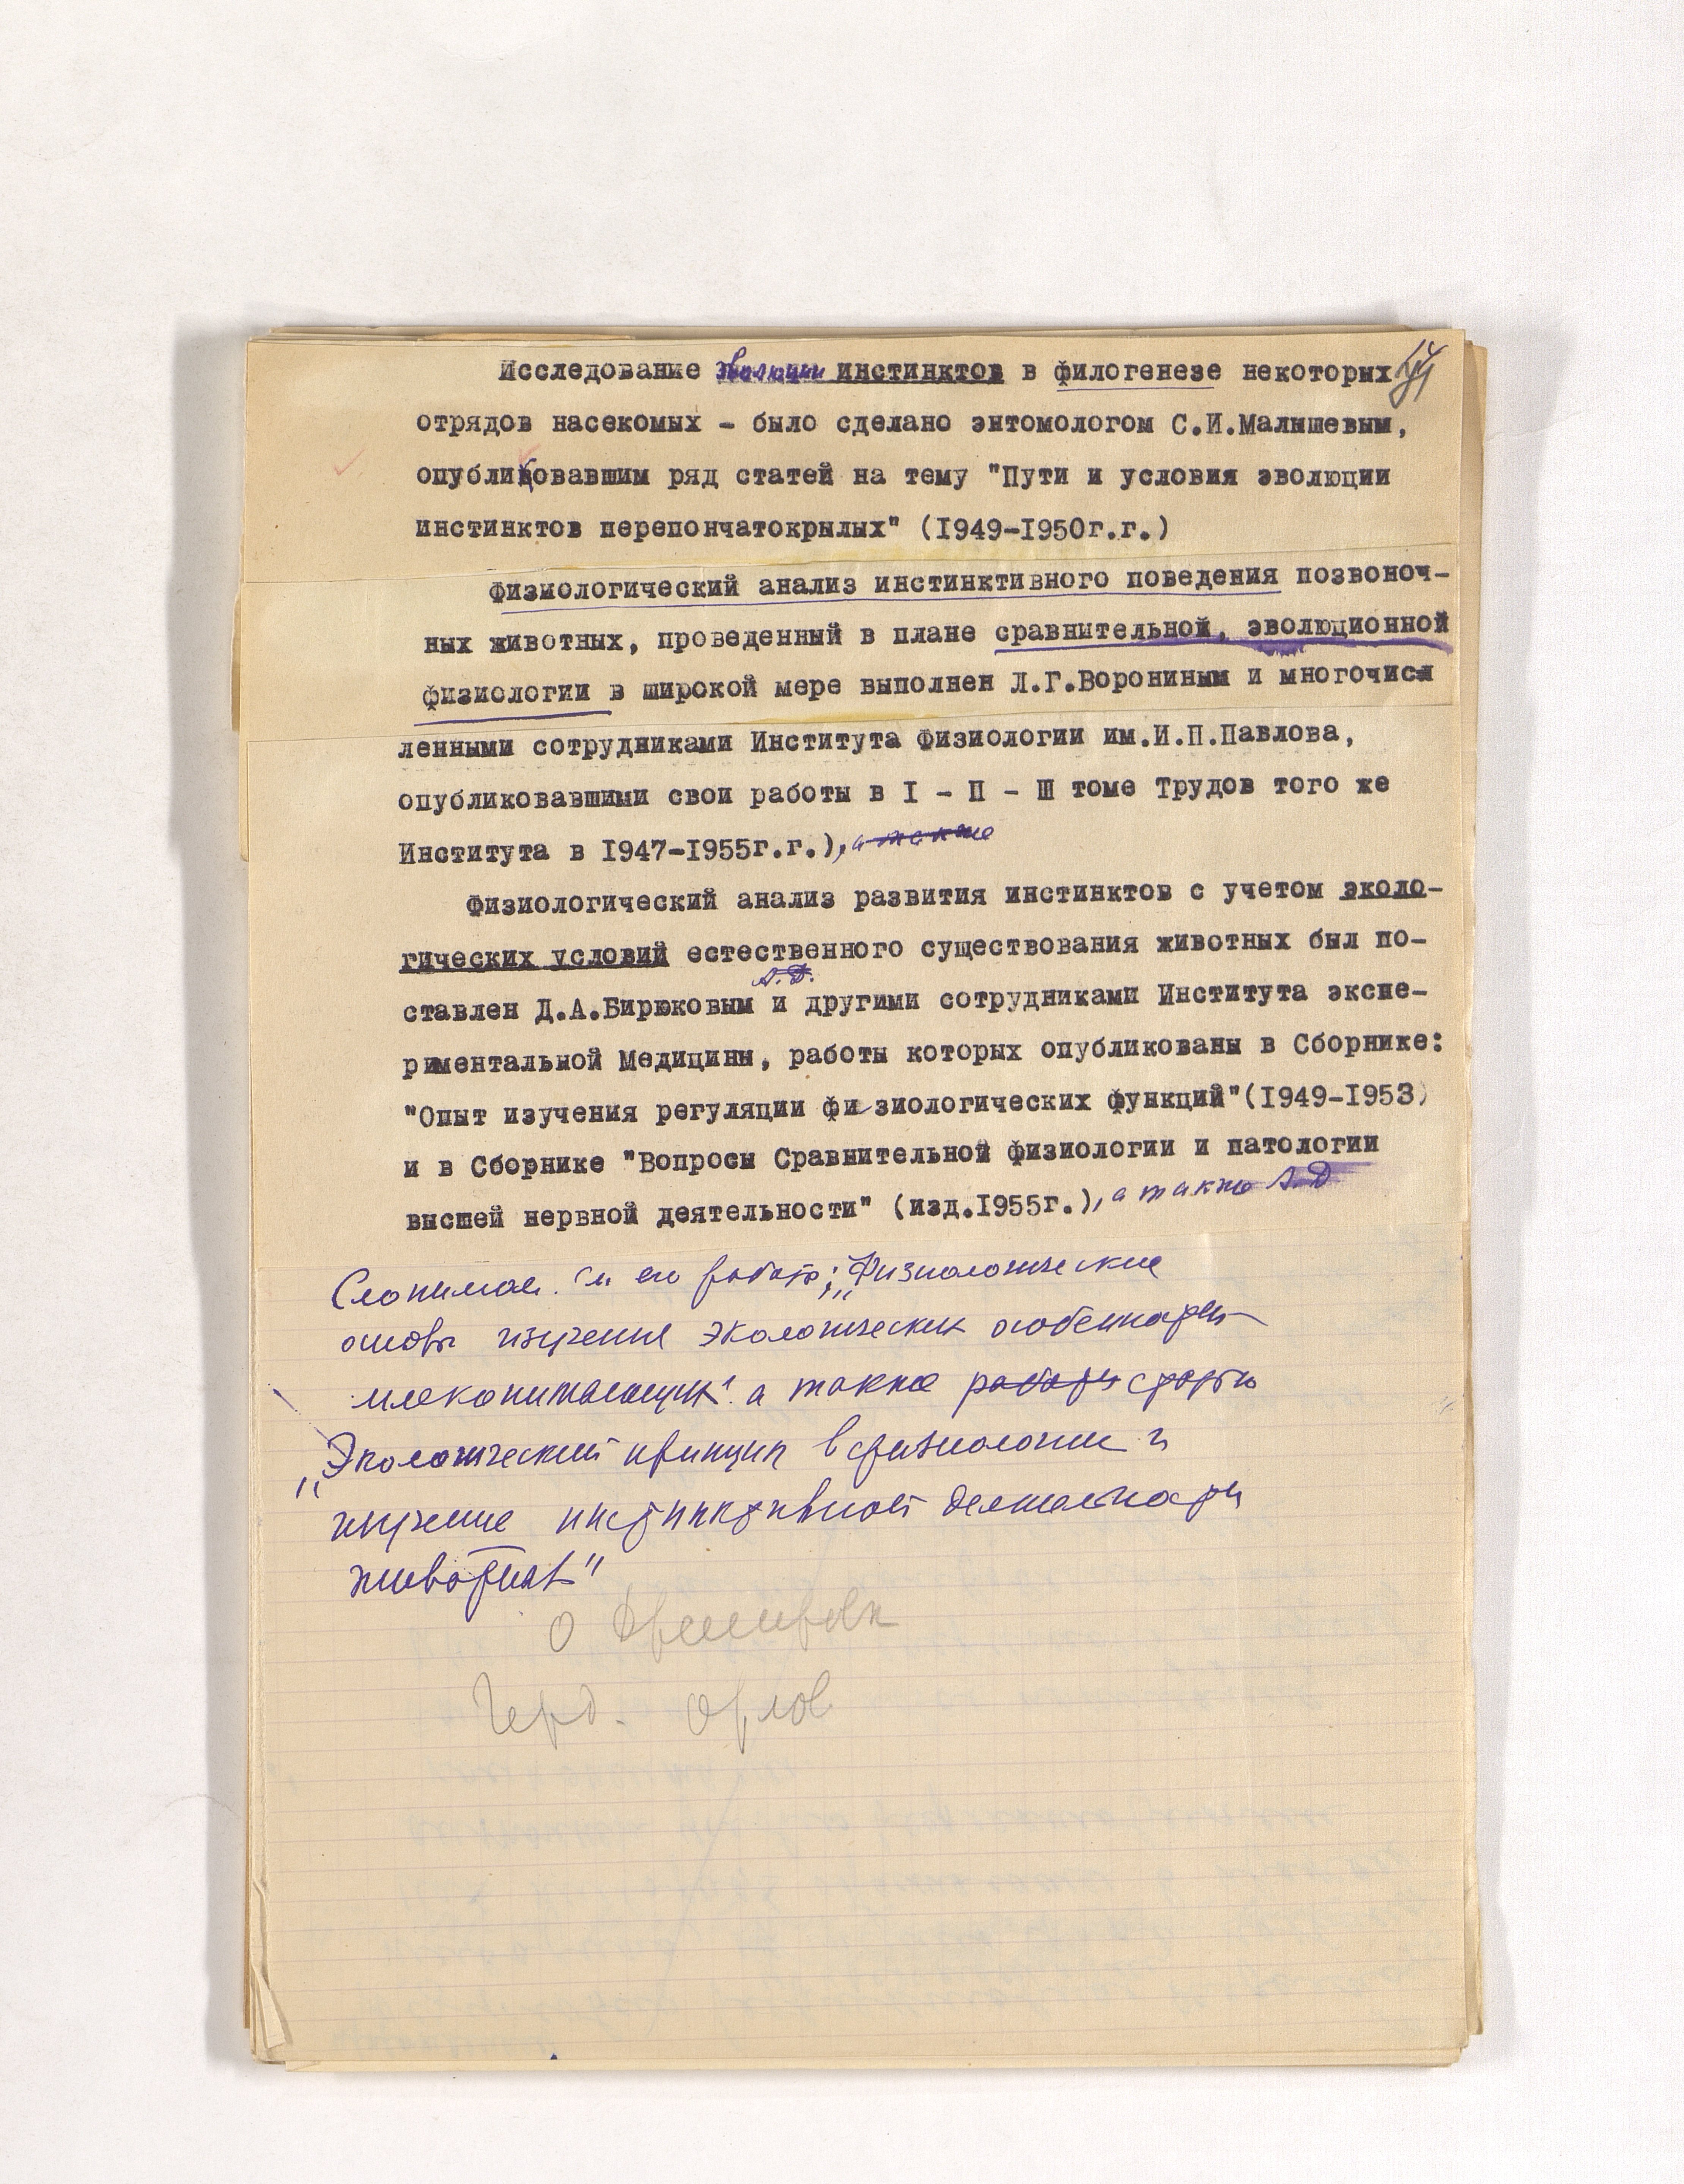 Исследование эволюции инстинктов в филогенезе некоторых
отрядов насекомых – было сделано энтомологом С.И.Малышевым,
опубликовавшим ряд статей на тему "Пути и условия эволюции
инстинктов перепончатокрылых" (1949–1950г.г.)
Физиологический анализ инстинктивного поведения позвоноч-
ных животных, проведенный в плане сравнительной, эволюционной
физиологии в широкой мере выполнен Л.Г.Ворониным и многочисл
ленными сотрудниками Института Физиологии им.И.П.Павлова,
опубликовавшими свои работы в I – П – Ш томе Трудов того же
Института в 1947–1955г.г.), а также
Физиологический анализ развития инстинктов с учетом эколо-
гических условий естественного существования животных был по-
А.Д.
ставлен Д.А.Бирюковым и другими сотрудниками Института экспе-
риментальной Медицины, работы которых опубликованы в Сборнике:
"Опыт изучения регуляции физиологических функций"(1949–1953)
и в Сборнике "Вопросы Сравнительной физиологии и патологии
высшей нервной деятельности" (изд.1955г.), а также А.Д
Слоним и его работ; „Физиологические
основы изучения экологических особенности
млекопитающих" а также работы статью
„Экологический принцип в физиологии и
изучение инстинктивной деятельности
животных"
о
Орлов